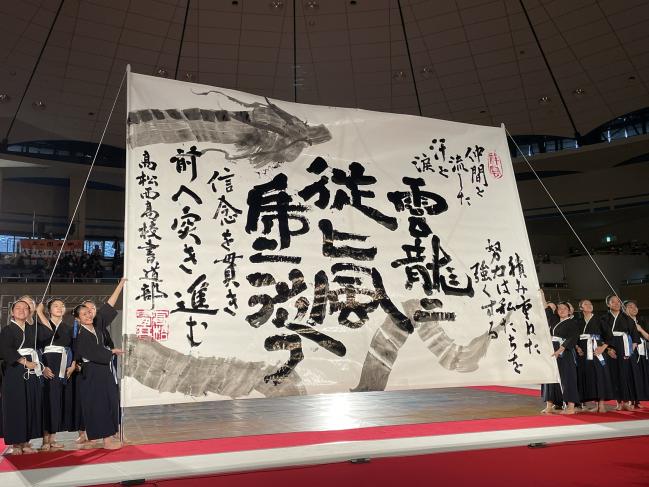 仲間と
流した
汗と涙
積み重ねた
努力は私たちを
強くする
雲龍ニ
従ヒ風
虎ニ従フ
信念を貫き
前へ突き進む
高松西高校書道部